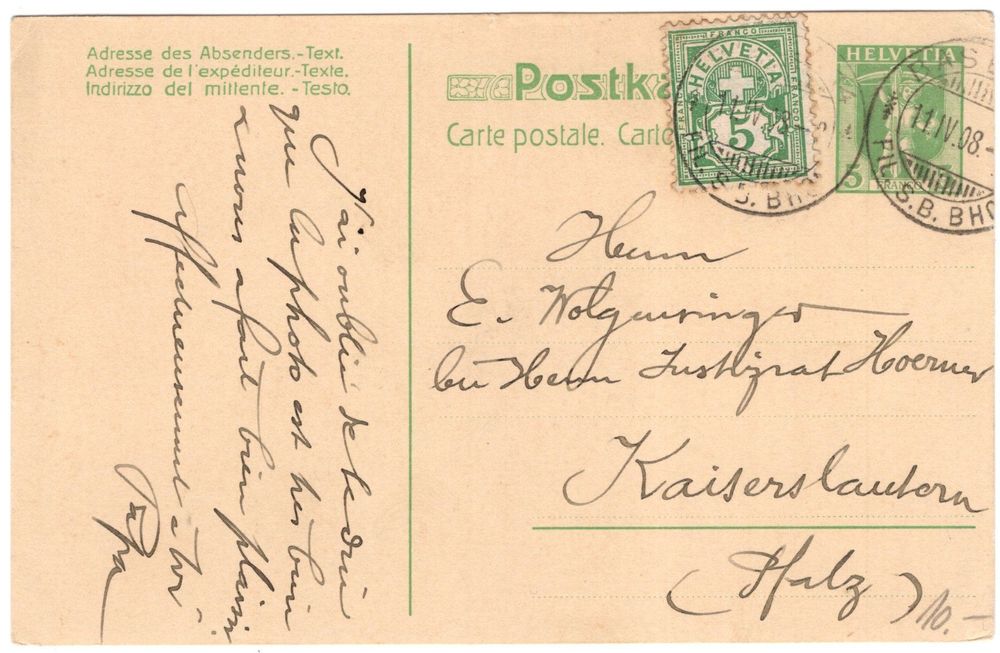 Adresse des Absenders.-Text.
Adresse de l'expéditeur.-Texte.
Indirizzo del mittente. -Testo.
J'ai oublié de te dire
que la photo est très bien
a nous a fait bien plaisir
Affectueusement à toi
Papa
Postka
Carte postale. Carto
FRANCO
HELVETIA
FRANCO
FRANCO
5
11.IV.08.
S.B. BHO
HELVETIA
5 FRANCO
BASE
11.IV.08.-
FIL. S.B. BHO
Herrn
E. Wolgensinger
bei Herrn Justizrat Hoerner
Kaiserslautern
(Pfalz)
10.-